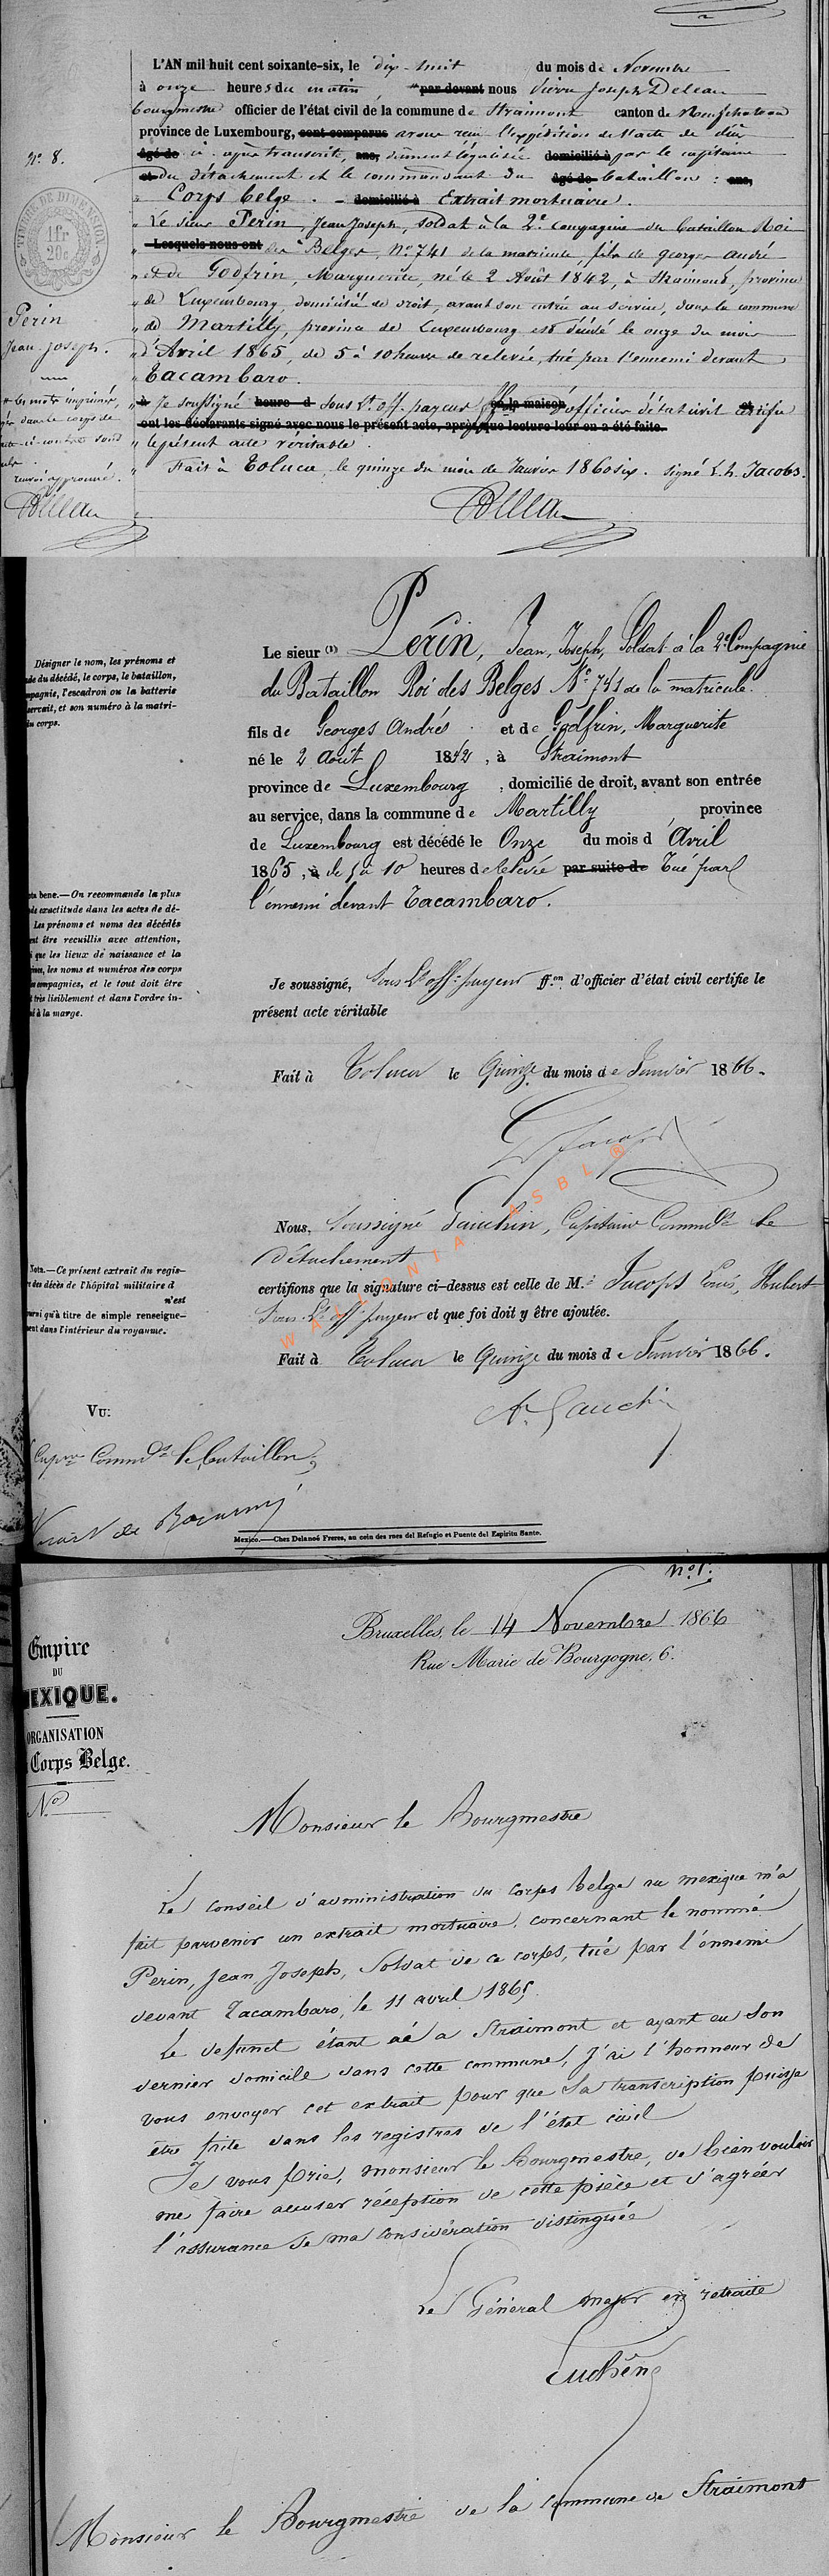 L'AN mil huit cent soixante-six, le dix-huit du mois de Novembre
à onze heures du matin, par devant nous Pierre Joseph Deleau
bourgmestre officier de l'état civil de la commune de Straimont canton de Neufchateau
province de Luxembourg, sont comparus avons reçu l'expédition de l'acte de
N° 8.
âgé de ci-après transcrite, ans, dûment légalisée domicilié à par le capitaine
et du détachement et le commandant du âgé de bataillon : ans,
Corps belge. - domicilié à Extrait mortuaire.
TIMBRE DE DIMENSION
1fr
20c
" Le sieur Perin, Jean Joseph, soldat à la 2e compagnie du bataillon Roi
" Lesquels nous ont des Belges, N° 741 de la matricule, fils de georges andré
" et de Godfrin, Marguerite, né le 2 Août 1842, à Straimont, province
" de Luxembourg, domicilié de droit, avant son entrée au service, dans la commune
" de Martilly, province de Luxembourg est décédé le onze du mois
" d'Avril 1865, de 5 à 10 heures de relevée, tué par l'ennemi devant
Tacambaro.
Perin
Jean-Joseph.
à Je soussigné heure d sous Lt. off. payeur en la maison d'officier d'état civil et certifie
ont les déclarants signé avec nous le présent acte, après que lecture leur en a été faite.
" le présent acte véritable.
" Fait à Toluca, le quinze du mois de Janvier 1860 six. signé L. h. Jacobs.
les mots imprimés,
dans le corps de
acte ci-contre sont
renvoi approuvé.
Deleau
Deleau
Désigner le nom, les prénoms et
de du décédé, le corps, le bataillon,
mpagnie, l'escadron ou la batterie
servait, et son numéro à la matri-
du corps.
Le sieur (1) Perin, Jean, Joseph, Soldat à la 2e Compagnie
du Bataillon Roi des Belges N° 741 de la matricule.
fils de Georges Andrés et de Godfrin, Marguerite
né le 2 Août 1842, à Straimont
province de Luxembourg, domicilié de droit, avant son entrée
au service, dans la commune de Martilly province
de Luxembourg est décédé le Onze du mois d Avril
1865, à de 5 à 10 heures de relevée par suite de Tué par
l'ennemi devant Tacambaro.
ta bene.—On recommande la plus
de exactitude dans les actes de dé-
Les prénoms et noms des décédés
ent être recuillis avec attention,
i que les lieux de naissance et la
ine, les noms et numéros des corps
compagnies, et le tout doit être
t très lisiblement et dans l'ordre in-
é à la marge.
Je soussigné, Sous Lt off. payeur ff.on d'officier d'état civil certifie le
présent acte véritable
Fait à Toluca le Quinze du mois de Janvier 1866.
WALLONIA ASBL ®
Nous, Soussigné Gauchin, Capitaine Commdt le
détachement
certifions que la signature ci-dessus est celle de M. Jacops Louis, Hubert
Sous Lt off. payeur et que foi doit y être ajoutée.
Fait à Toluca le Quinze du mois de Janvier 1866.
Nota.—Ce présent extrait du regis-
e des décès de l'hôpital militaire d
n'est
ourni qu'à titre de simple renseigne-
ent dans l'intérieur du royaume.
A. Gauchin
VU:
Capne Commdt le bataillon
Mexico.—Chez Delanoé Freres, au coin des rues del Refugio et Puente del Espiritu Santo.
N° 1.
Bruxelles, le 14 Novembre 1866
Rue Marie de Bourgogne, 6.
Empire
DU
EXIQUE.
ORGANISATION
Corps Belge.
N°
Monsieur le Bourgmestre
Le conseil d'administration du corps belge au mexique m'a
fait parvenir un extrait mortuaire, concernant le nommé
Perin, Jean Joseph, Soldat de ce corps, tué par l'ennemi
devant Tacambaro, le 11 avril 1865.
Le defunct étant né a Straimont et ayant eu son
dernier domicile dans cette commune, j'ai l'honneur de
vous envoyer cet extrait pour que sa transcription puisse
être faite dans les registres de l'état civil
Je vous prie, monsieur le Bourgmestre, de bien vouloir
me faire accuser réception de cette pièce et d'agréer
l'assurance de ma considération distinguée
Le Général major en retraite
Monsieur le Bourgmestre de la commune de Straimont